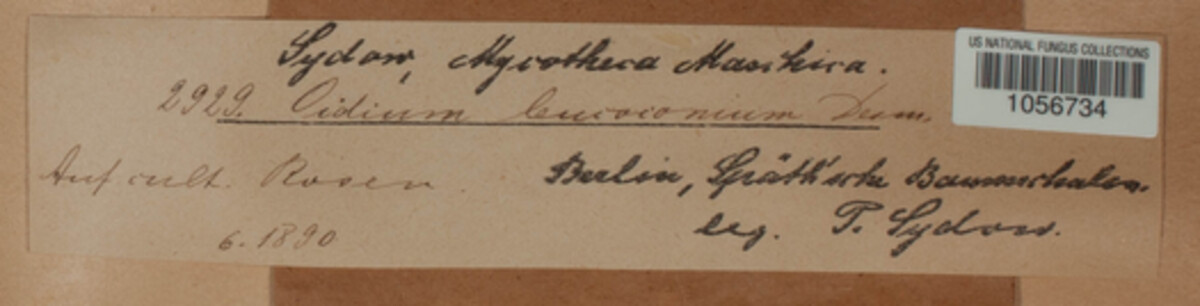 Sydow, Mycotheca Marchica.
2929. Oidium leucoconium Desm.
Auf cult. Rosen
Berlin, Späth'sche Baumschulen.
6. 1890
leg. P. Sydow.
US NATIONAL FUNGUS COLLECTIONS
1056734